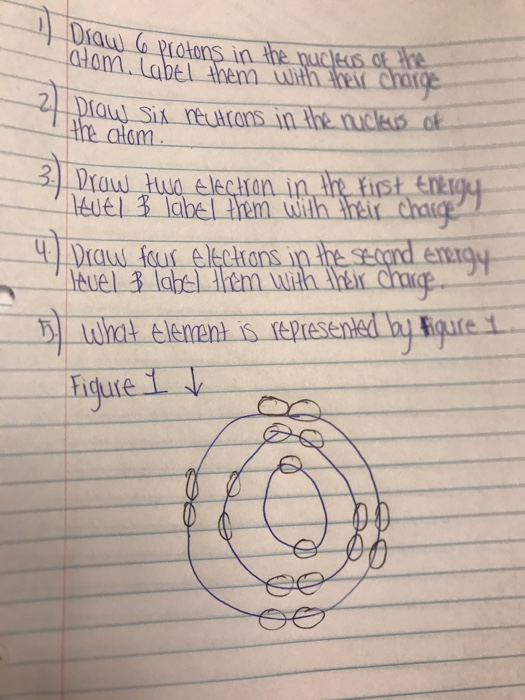 1) Draw 6 protons in the nucleus of the
atom. Label them with their charge
2) Draw six neutrons in the nucleus of
the atom.
3.) Draw two electron in the first energy
level & label them with their charge
4.) Draw four electrons in the second energy
level & label them with their charge.
5) What element is represented by Figure 1
Figure 1 ↓